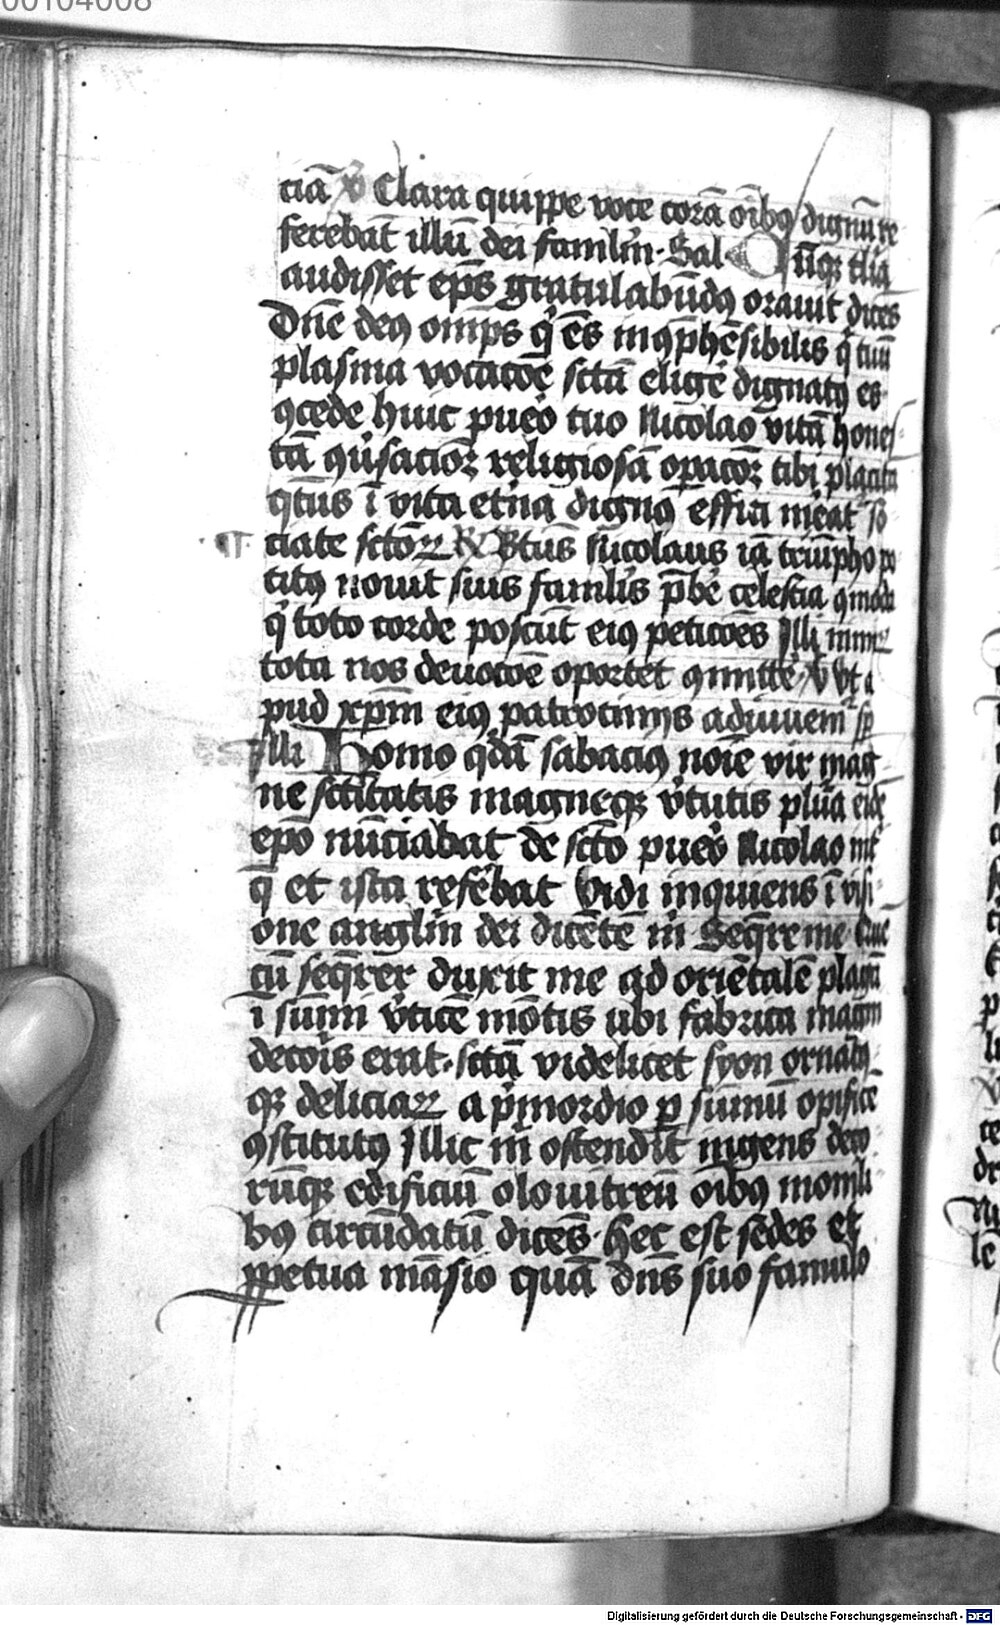 00104008
ciā v̓ Clara quippe voce corā oībꝯ dignū re
ferebat illū dei famlm̄. Sal Cūqꝫ tlia
audisset ep̄s gratulabūdꝯ orauit dicēs
Dn̄e deꝯ omīps q̓ es īꝯp̄hēsibilis q̓ tuū
plasma vocacōe sctā elig̓e dignatꝯ es
ꝯcede huic puero tuo Nicolao vitā hones
tā ꝯu̓sacioꝫ religiosā op̄acoꝫ tibi placita
qt̄us ī vita et̓na dignꝯ effici m̓eat so
ciate sctōꝝ ℟ Btūs Nicolaus iā triūpho po
titꝯ nouit suis famlis p̄be̓ celestia ꝯmoda
q̓ toto corde poscūt eiꝯ peticōes Illi
tota nos deuocōe oportet ꝯmitte̓ v̓ Vt a
pud xp̄m eiꝯ patrocinijs adiuuem̄ sp̄
Illi Homo qdā sabaciꝯ noīe vir mag
ne sctitatis magneqꝫ v̓tutis plīa eidē
ep̄o nūciabat de sctō pue̓o Nicolao int̓
q̄ et ista refe̓bat Vidi inquiens ī visi
one anglm̄ dei dicētē m̓ Seq̄re me Que
cū seq̄rer duxit me ad oriētalē plagā
ī sūmi v̓ticē mōtis ubi fabrica magni
deco̓is erat. sctā videlicet syon ornatꝯ
qꝫ deliciaꝝ a p̓mordio ꝑ sūmū opificē
ꝯstitutꝯ Illic m̓ ostendit ingens deco
rūqꝫ edificiū olouitreū oībꝯ monili
bꝯ circūdatū dicēs. hec est sedes et
ꝑpetua māsio quā dn̄s suo famulo
Digitalisierung gefördert durch die Deutsche Forschungsgemeinschaft - DFG